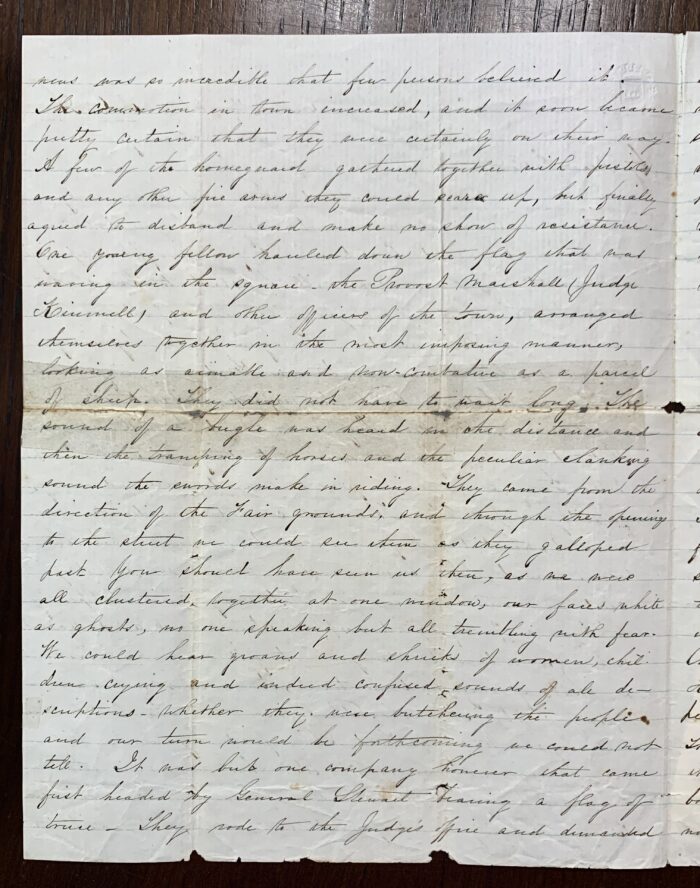 news was so incredible that few persons believed it.
The commotion in town increased, and it soon became
pretty certain that they were certainly on their way.
A few of the homeguard gathered together with pistols
and any other fire arms they could scare up, but finally
agreed to disband and make no show of resistance.
One young fellow hauled down the flag that was
waving in the square - the Provost Marshall (Judge
Kimmell) and other officers of the town, arranged
themselves together in the most imposing manner,
looking as aimable and non-combative as a parcel
of sheep. They did not have to wait long. The
sound of a bugle was heard in the distance and
then the tramping of horses and the peculiar clanking
sound the swords make in riding. They came from the
direction of the Fair grounds, and through the opening
to the street we could see them as they galloped
past. You should have seen us then, as we were
all clustered, together, at one window, our faces white
as ghosts, no one speaking but all trembling with fear.
We could hear groans and shrieks of women, chil-
dren crying and indeed confused sounds of all de-
scriptions - whether they were butchering the people
and our turn would be forthcoming we could not
tell. It was but one company however that came
first headed by General Stewart bearing a flag of
truce - They rode to the Judges office and demanded